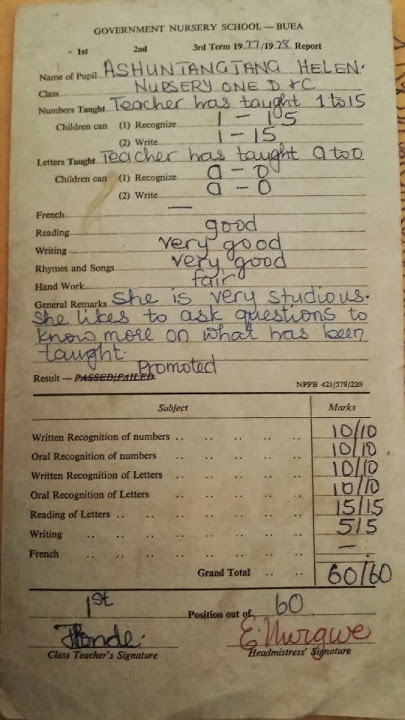 GOVERNMENT NURSERY SCHOOL — BUEA
1st 2nd 3rd Term 1977/1978 Report
Name of Pupil ASHUNTANGTANG HELEN.
Class NURSERY ONE D & C
Numbers Taught Teacher has taught 1 to 15
Children can (1) Recognize 1 - 15
(2) Write 1 - 15
Letters Taught Teacher has taught a to o
Children can (1) Recognize a - o
(2) Write a - o
French —
Reading good
Writing very good
Rhymes and Songs very good
Hand Work fair
General Remarks She is very studious.
She likes to ask questions to
know more on what has been
taught.
Result — PASSED/FAILED Promoted
NPPB 421/578/220
Subject Marks
Written Recognition of numbers .. .. .. .. 10/10
Oral Recognition of numbers .. .. .. .. 10/10
Written Recognition of Letters .. .. .. .. 10/10
Oral Recognition of Letters .. .. .. .. 10/10
Reading of Letters .. .. .. .. .. 15/15
Writing .. .. .. .. .. .. 5/5
French .. .. .. .. .. .. —
Grand Total .. .. 60/60
1st Position out of 60
Class Teacher's Signature Headmistress' Signature